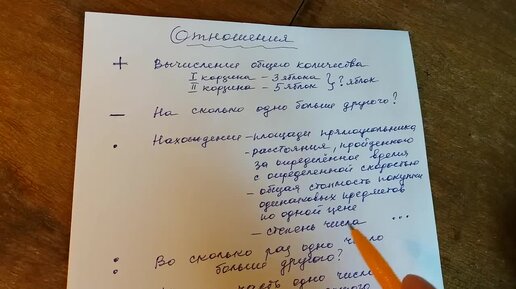 Отношения
+ Вычисление общего количества
I корзина – 3 яблока } ? яблок
II корзина – 5 яблок
– На сколько одно больше другого?
· Нахождение – площади прямоугольника
– расстояния, пройденного
за определённое время
с определенной скоростью
– общая стоимость покупки
одинаковых предметов
по одной цене
– степень числа ...
: Во сколько раз одно число
больше другого?
часть одно число